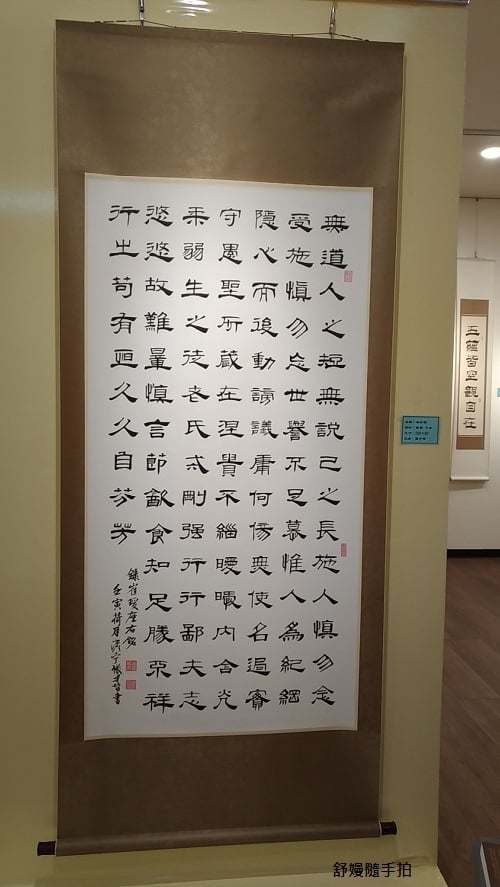 無道人之短無說己之長施人慎勿念
受施慎勿忘世譽不足慕惟人為紀綱
隱心而後動謗議庸何傷無使名過實
守愚聖所藏在涅貴不緇曖曖內含光
柔弱生之徒老氏戒剛強行行鄙夫志
悠悠故難量慎言節飲食知足勝不祥
行之苟有恆久久自芬芳
錄崔瑗座右銘
壬寅荷月書
五蘊皆空觀自在
舒嫚隨手拍